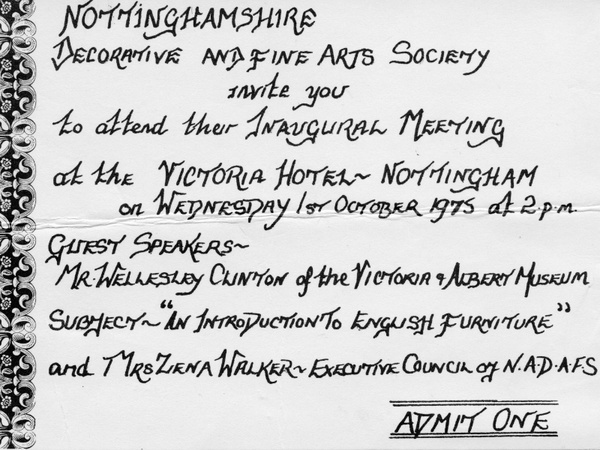 NOTTINGHAMSHIRE
DECORATIVE AND FINE ARTS SOCIETY
invite you
to attend their INAUGURAL MEETING
at the VICTORIA HOTEL~ NOTTINGHAM
on WEDNESDAY 1ST OCTOBER 1975 at 2.p.m.
GUEST SPEAKERS~
MR. WELLESLEY CLINTON of the VICTORIA & ALBERT MUSEUM
SUBJECT~ "AN INTRODUCTION TO ENGLISH FURNITURE"
and MRS ZIENA WALKER~ EXECUTIVE COUNCIL of N.A.D.A.F.S
ADMIT ONE